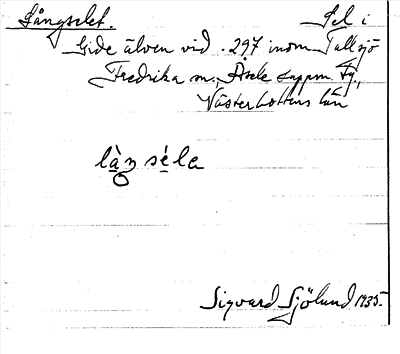 Långselet. Sel i
Gide älven vid .297 inom Tallsjö
Fredrika sn. Åsele lappm. Ty.,
Västerbottens län
là̱ŋ sé̱la
Sigvard Sjölund 1935.